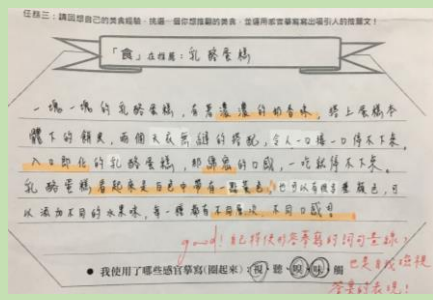 任務三:請回想自己的美食經驗,挑選一個你想推薦的美食,並運用感官摹寫寫出吸引人的推薦文!
「食」在推薦:乳酪蛋糕
一塊一塊的乳酪蛋糕,有著濃濃的奶香味,搭上蛋糕本
體下的餅皮,兩個天衣無縫的搭配,令人一口接一口停不下來。
入口即化的乳酪蛋糕,那綿密的口感,一吃就停不下來。
乳酪蛋糕看起來是白色中帶有一點黃色,也可以有很多種顏色,可
以添加不同的水果味,每一種都有不同層次、不同口感!
good!自己擇使的感官摹寫的詞句畫線,
也是自我檢視
答案的表現!
● 我使用了哪些感官摹寫(圈起來):視、聽、嗅、味、觸